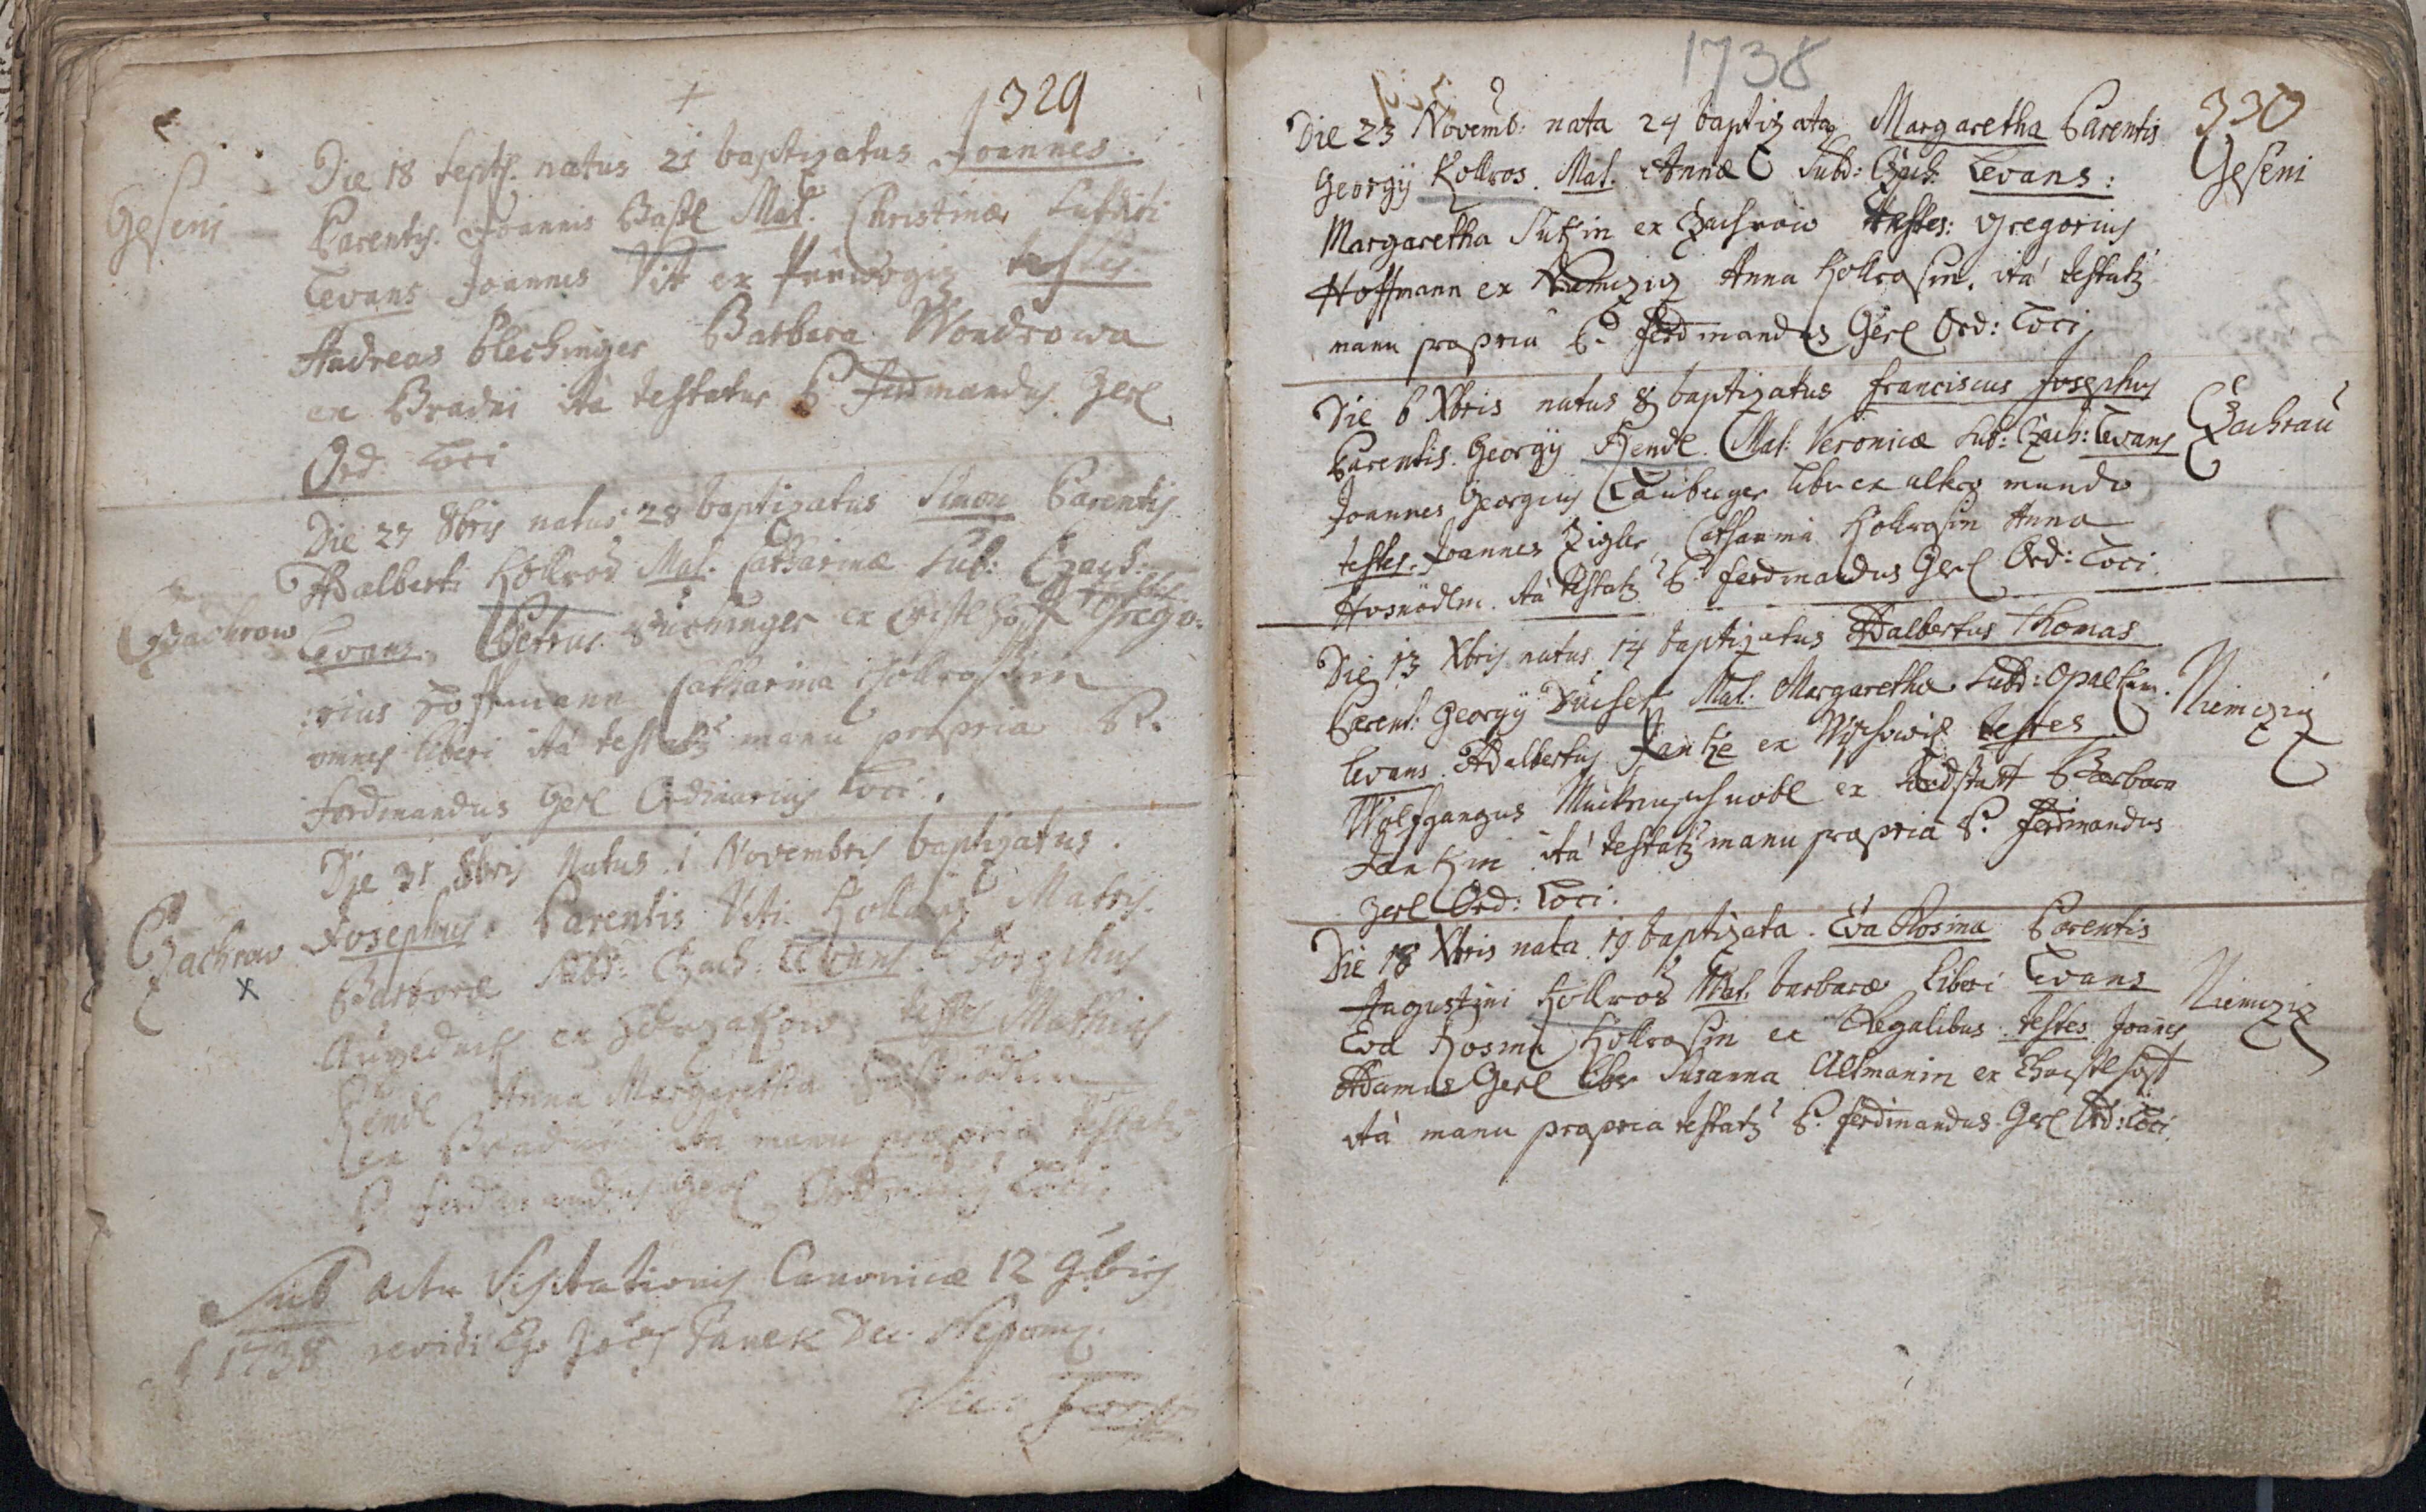 329
Geseni
Die 18 Septb. natus 21 baptizatus Joannes.
Parentis. Joannis Bastl Mat. Christinæ Subditi
Levans Joannes Vit ex testes.
Andreas Plechinger Barbara Wondrowa
ex Bradni ita testatur P. Ferdinandus Gerl
Ord: Loci
Die 27 8bris natus 28 baptizatus Simon Parentis
Adalberti Kollros Mat. Catharinæ Sub: Czach:
Czachrow
Levans. Petrus ex testes Grego:
:rius Hoffmann Catharina Hollrossin
omnes liberi ita testatz manu propria P.
Ferdinandus Gerl Ordinarius Loci.
Die 31 8bris Natus 1 Novembris baptizatus.
Czachrow
x
Josephus. Parentis Viti Kollros Matris.
Barbaræ Subd: Czach: Levans. Josephus
ex testes Mathias
Hendl Anna Margaretha
ex Bradni ita manu propria testatz
P. Ferdinandus Gerl Ordinarius Loci.
Sub actu Visitationis Canonicæ 12 9bris
1738 revidi Ego Panek Dec. Nepom.
1738
330
Die 23 Novemb: nata 24 baptizata Margaretha Parentis
Geseni
Georgÿ Kollros. Mat. Annæ Subd: Czach. Levans:
Margaretha Sutzin ex Czachrow testes: Gregorius
Hoffmann ex Niemcziz Anna Hollrossin. ita testatz
manu propria P. Ferdinandus Gerl Ord: Loci
Die 6 Xbris natus 8 baptizatus Franciscus Josephus
Czachrau
Parentis. Georgÿ Hendl. Mat: Veronicæ Sub: Czach: Levans
Joannes Georgius Tauberger liber ex altero mundo
testes. Joannes Zigler Catharina Hollrosin Anna
ita testatz P. Ferdinandus Gerl Ord: Loci.
Die 13 Xbris natus 14 baptizatus Adalbertus Thomas
Niemcziz
Parent: Georgÿ Mat. Margarethæ Subd: Opalken.
Levans. Adalbertus Jantze ex testes
Wolfgangus ex Neudstatt Barbara
Jantzin ita testatz manu propria P. Ferdinandus
Gerl Ord: Loci.
Die 18 Xbris nata 19 baptizata. Eva Rosina Parentis
Niemcziz
Augustini Hollros Mat. barbaræ Liberi Levans
Eva Rosina Hollrosin ex Regalibus testes Joannes
Adamus Gerl liber Susanna Altmanin ex
ita manu propria testatz P. Ferdinandus Gerl Ord: Loci.